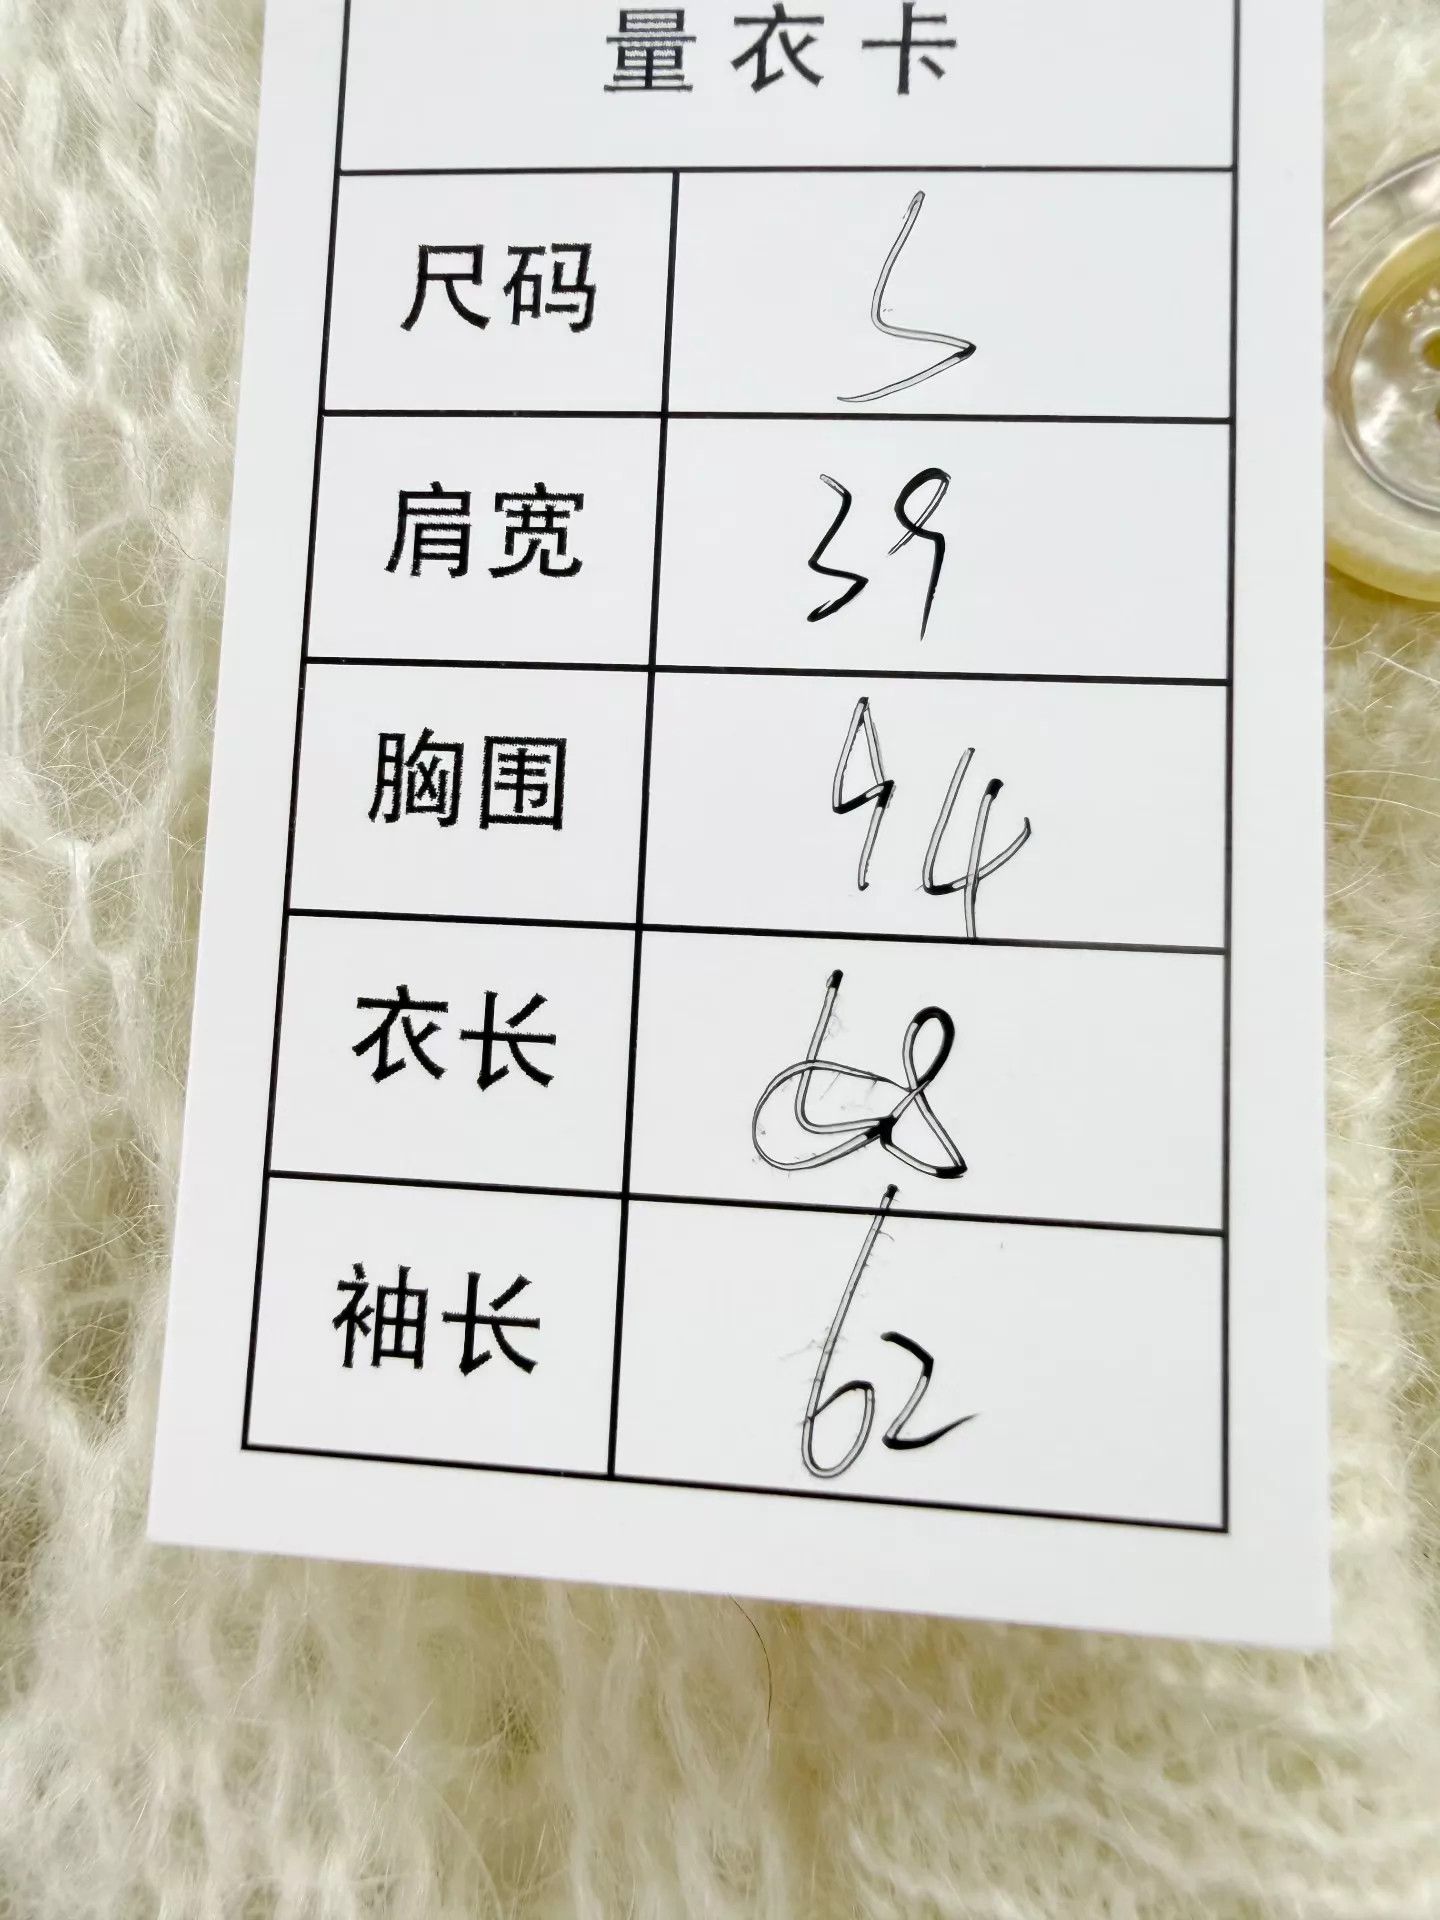 量衣卡
尺码 S
肩宽 39
胸围 94
衣长 68
袖长 62